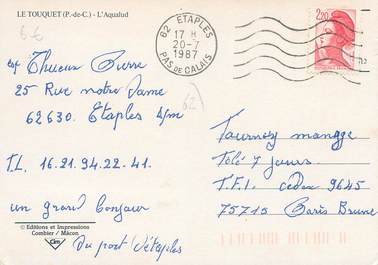 LE TOUQUET (P.-de-C.) - L'Aqualud
62 ETAPLES
17 H
20-7
1987
PAS DE CALAIS
2,20
6€
62
exp Thueux Pierre
25 Rue notre Dame
62630. Etaples s/m
TL. 16.21.94.22.41.
un grand bonjour
Du port d'étaples
© Editions et Impressions
Combier / Mâcon
Cim
Tournez manège
Télé 7 jours
T.F.1. cedex 9645
75715 Paris Brune